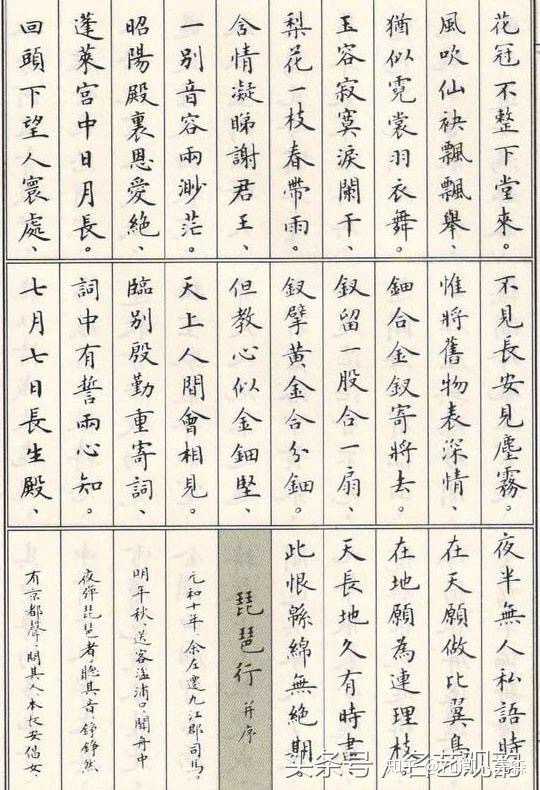 花冠不整下堂來。
風吹仙袂飄飄舉、
猶似霓裳羽衣舞。
玉容寂寞淚闌干、
梨花一枝春帶雨。
含情凝睇謝君王、
一別音容兩渺茫。
昭陽殿裏恩愛絕、
蓬萊宮中日月長。
回頭下望人寰處、
不見長安見塵霧。
惟將舊物表深情、
鈿合金釵寄將去。
釵留一股合一扇、
釵擘黃金合分鈿。
但教心似金鈿堅、
天上人間會相見。
臨別殷勤重寄詞、
詞中有誓兩心知。
七月七日長生殿、
夜半無人私語時
在天願做比翼鳥
在地願為連理枝
天長地久有時盡
此恨緜綿無絕期
琵琶行 并序
元和十年、余左遷九江郡司馬。
明年秋、送客湓浦口、聞舟中
夜彈琵琶者、聽其音、錚錚然
有京都聲、問其人、本長安倡女
头条号